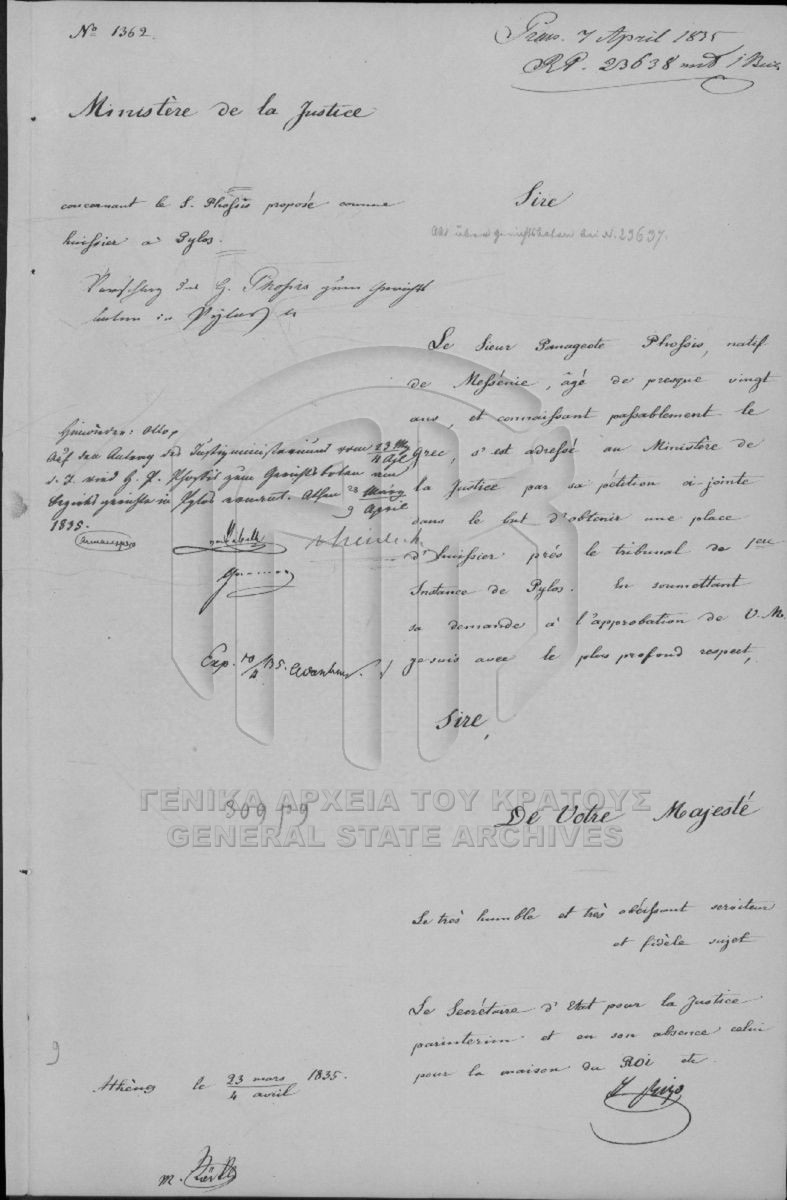 No 1362.
Praes. 7 April 1835
RP. 23638 mit 1 Beil.
Ministère de la Justice
concernant le S. Phossis proposé comme
huissier à Pylos.
Sire
Akt über Gerichtsboten bei N. 23637.
Vorschlag des G. Phossis zum Gerichts
boten in Pylos
Le Sieur Panageote Phossis, natif
de Messénie, âgé de presque vingt
ans, et connaissant passablement le
Grec, s'est adressé au Ministère de
la Justice par sa pétition ci jointe
dans le but d'obtenir une place
d'huissier près le tribunal de 1ere
Instance de Pylos. En soumettant
sa demande à l'approbation de V. M.
je suis avec le plus profond respect,
Auf den Antrag des Justizministeriums vom 23 Mz / 4 Apl
d. J. wird G. P. Phossis zum Gerichtsboten am
Bezirksgerichte in Pylos ernannt. Athen 23 März / 4 April
1835.
Armansperg
Exp. 10/4 35.
Sire,
309 p9
ΓΕΝΙΚΑ ΑΡΧΕΙΑ ΤΟΥ ΚΡΑΤΟΥΣ
GENERAL STATE ARCHIVES
De Votre Majesté
Le très humble et très obéissant serviteur
et fidèle sujet
Le Secrétaire d'Etat pour la Justice
parinterim et en son absence celui
pour la maison du Roi etc.
Rizo
9
Athènes le 23 mars / 4 avril 1835.